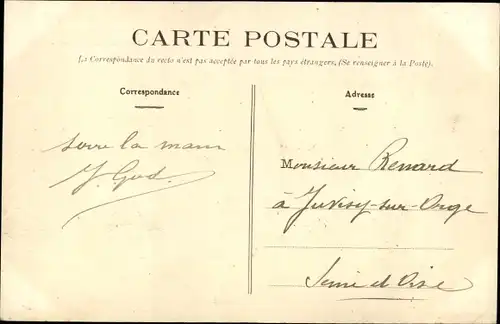 CARTE POSTALE
La Correspondance du recto n'est pas acceptée par tous les pays étrangers, (Se renseigner à la Poste).
Correspondance
Adresse
serre la main
Monsieur Renard
à Juvisy-sur-Orge
Seine et Oise